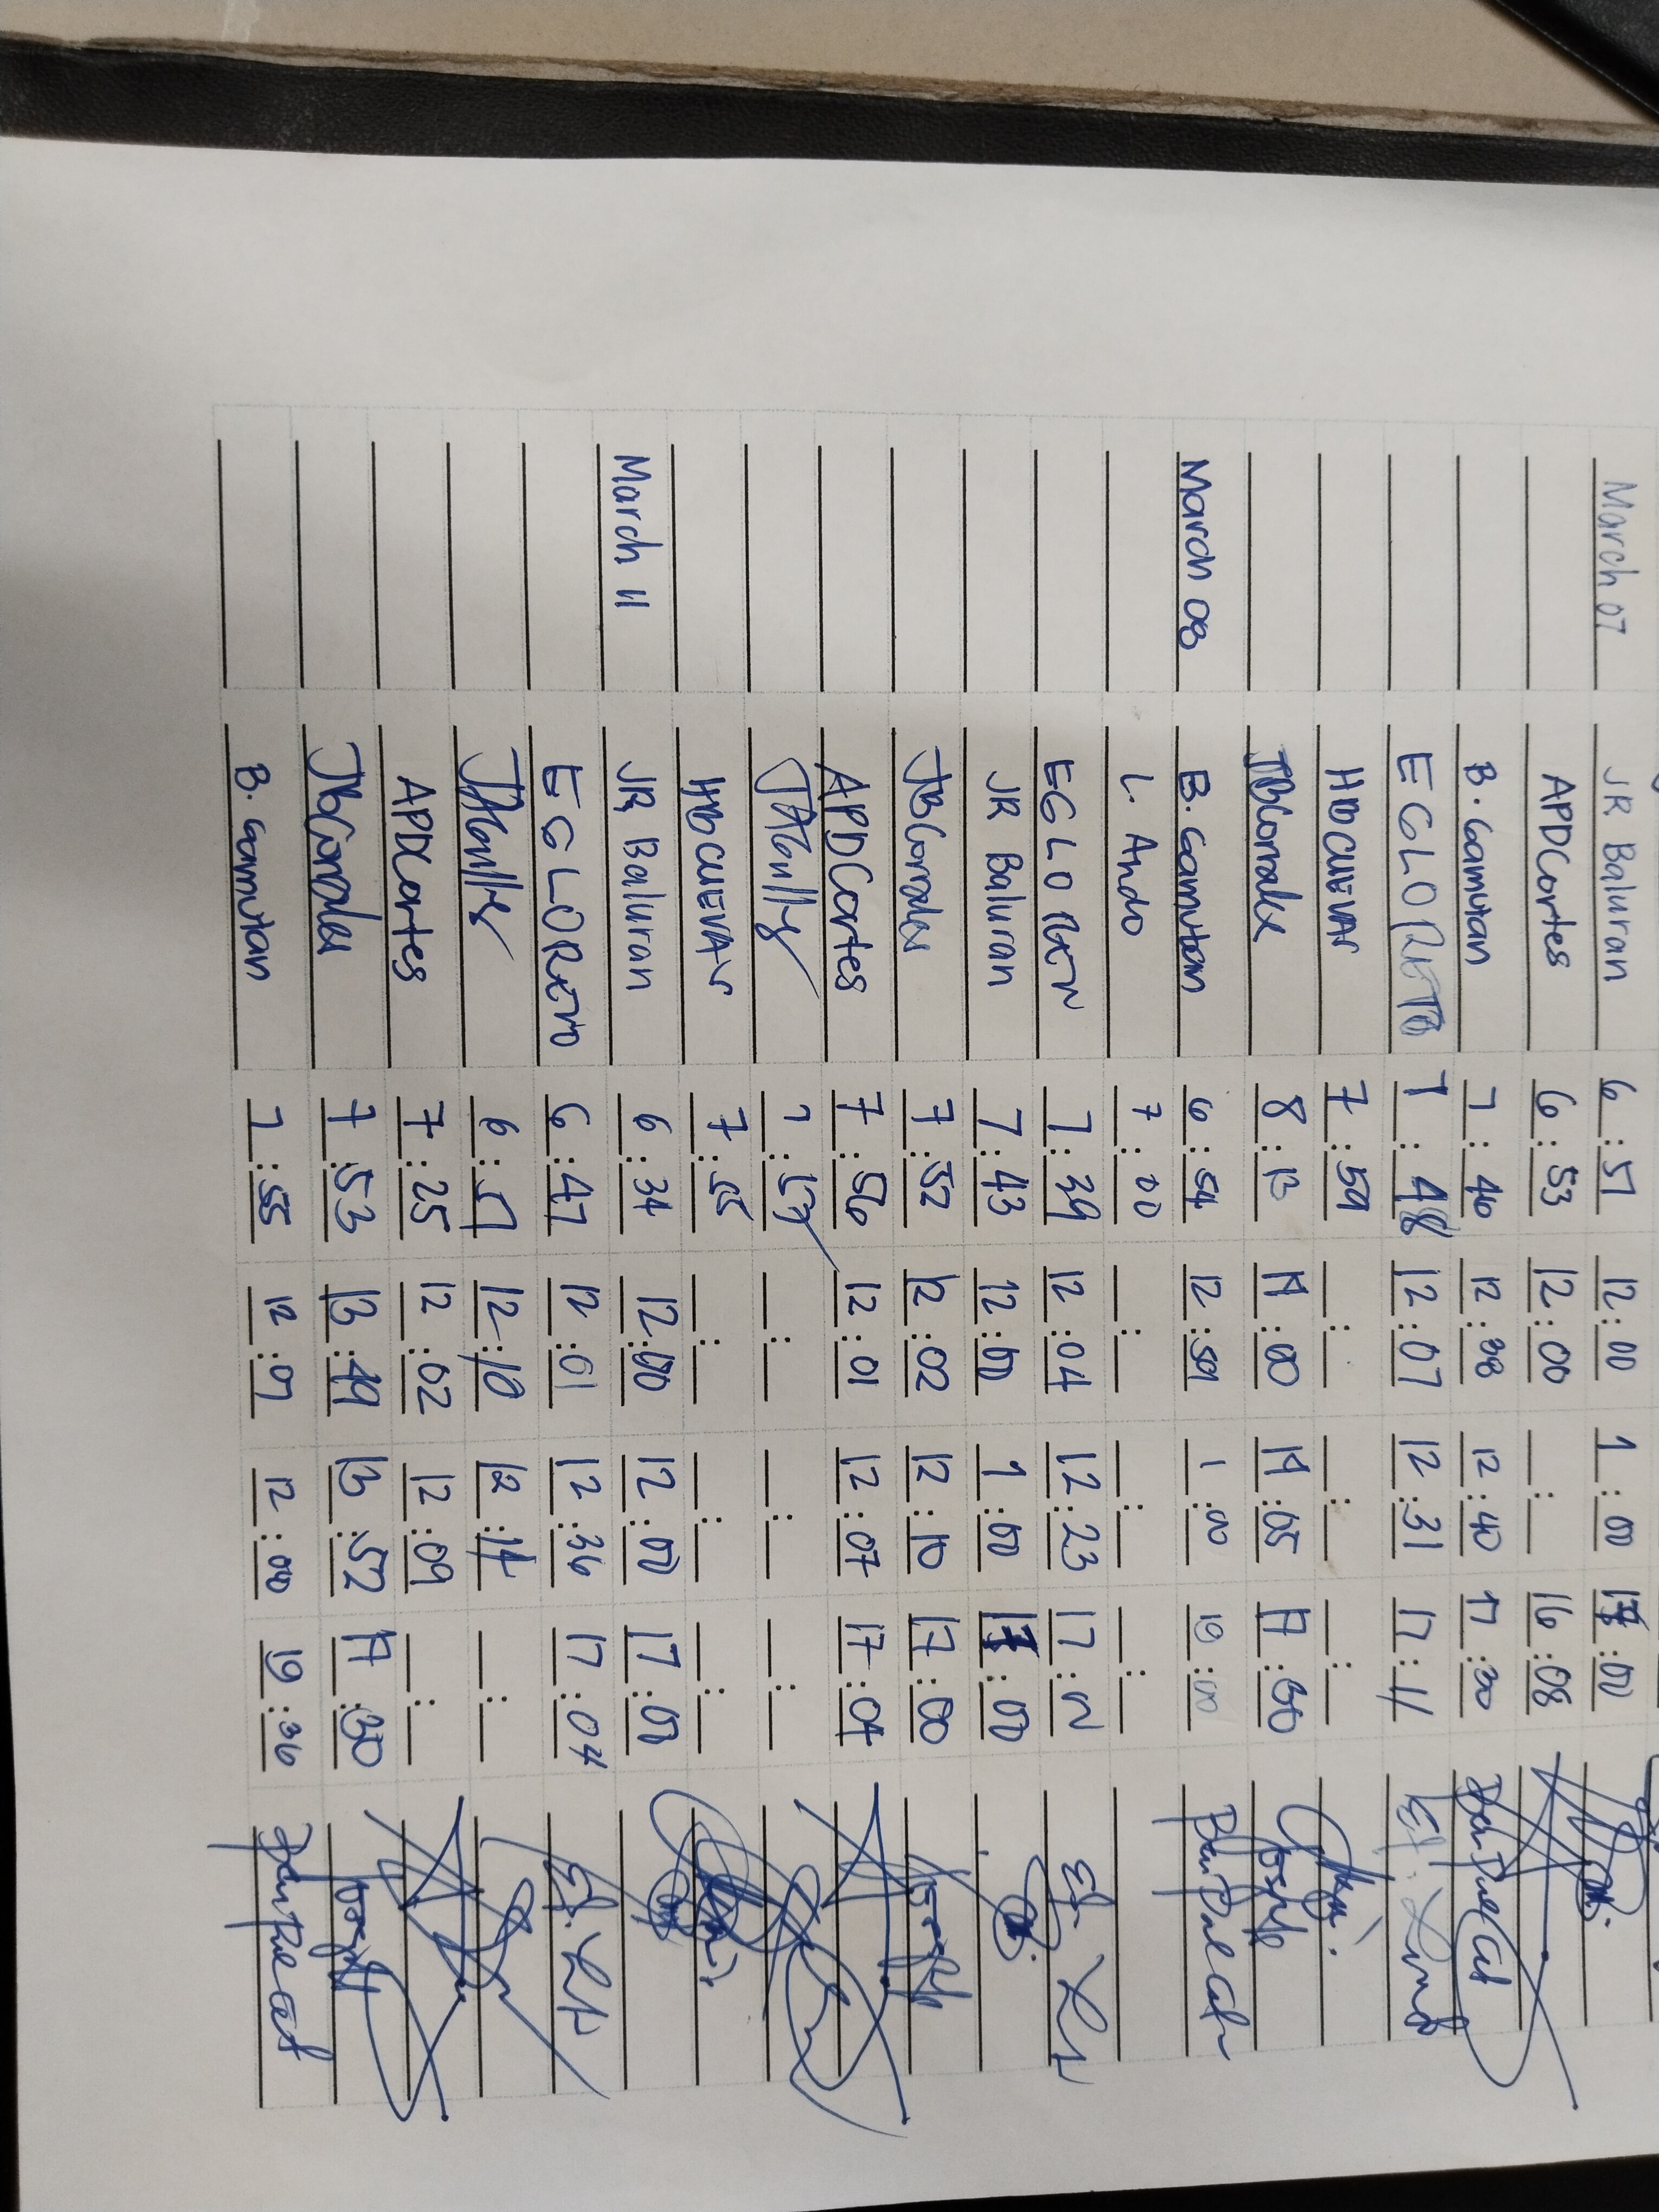 March 07 JR Baluran 6:51 12:00 1:00 17:00
APDCortes 6:53 12:00 16:08
B. Gamutan 7:40 12:38 12:40 17:30
EGLORETO 7:48 12:07 12:31 17:11
HDCUEVAS 7:59
JBCorrales 8:13 14:00 14:05 17:30
March 08 B. Gamutan 6:54 12:59 1:00 19:00
L. Ando 7:00
EGLORETO 7:39 12:04 12:23
JR Baluran 7:43 12:00 1:00 17:00
JBCorrales 7:52 12:02 12:10 17:00
APDCortes 7:56 12:01 12:07 17:04
7:57
HDCUEVAS 7:55
March 11 JR Baluran 6:34 12:00 12:00 17:08
EGLORETO 6:47 12:01 12:36 17:04
6:51 12:10 12:14
APDCortes 7:25 12:02 12:09
JBCorrales 7:53 13:49 13:52 17:30
B. Gamutan 7:55 12:07 12:08 19:36